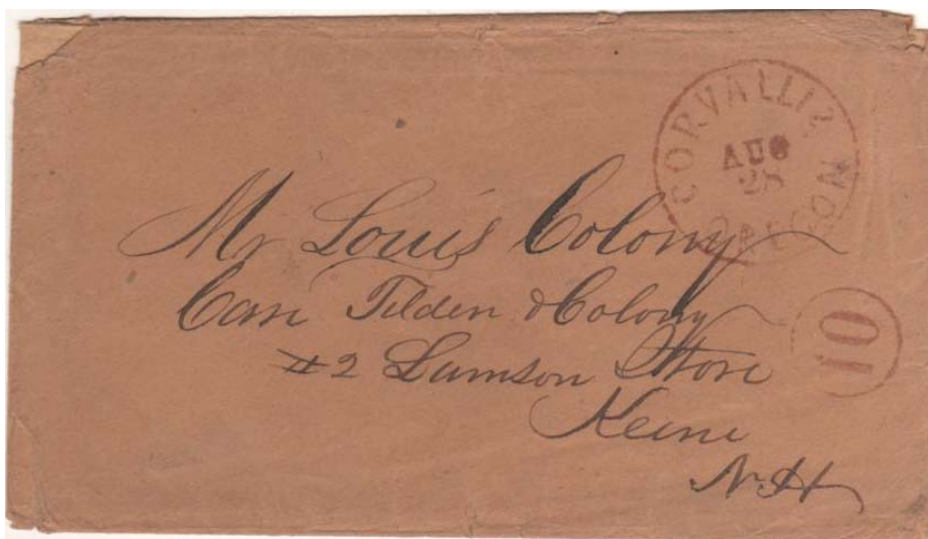 CORVALLIS
AUG
28
OREGON
Mr Louis Colony
Care Tilden & Colony
#2 Lamson Store
10
Keene
N.H